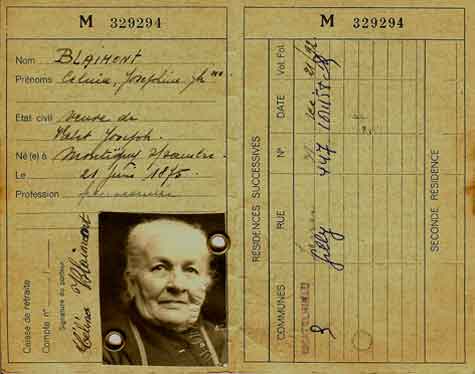 M 329294
Nom BLAIMONT
Prénoms Célina, Joséphine,
Etat civil Veuve de
Joseph.
Né(e) à Montigny s/Sambre.
Le 21 juin 1875.
Profession
Caisse de retraite
Compte n°
Signature du porteur
Célina Blaimont
M 329294
RÉSIDENCES SUCCESSIVES
COMMUNES
RUE
N°
DATE
Vol. Fol.
CHATELINEAU
Gilly
447
SECONDE RÉSIDENCE